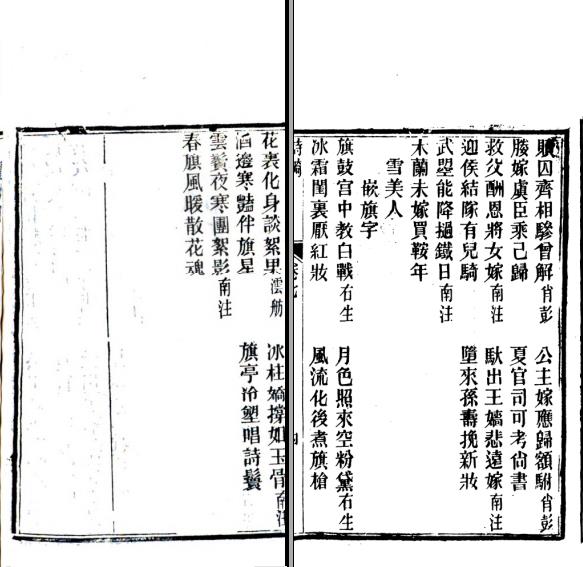 贖囚齊相驂曾解肖彭 公主嫁應歸額駙肖彭
媵嫁虞臣乘己歸 夏官司可考尙書
救父酬恩將女嫁南注 馱出王嬙悲遠嫁南注
迎侯結隊有兒騎 墮來孫壽挽新妝
武曌能降撾鐵日南注
木蘭未嫁買鞍年
雪美人
嵌旗字
旗鼓宫中教白戰右生 月色照來空粉黛右生
冰霜閨裏厭紅妝 風流化後煮旗槍
卷七
花裏化身談絮果澐舫 冰柱嬌撐如玉骨南注
酒邊寒豔伴旗星 旗亭冷塑唱詩鬟
雲鬢夜寒團絮影南注
春旗風暖散花魂